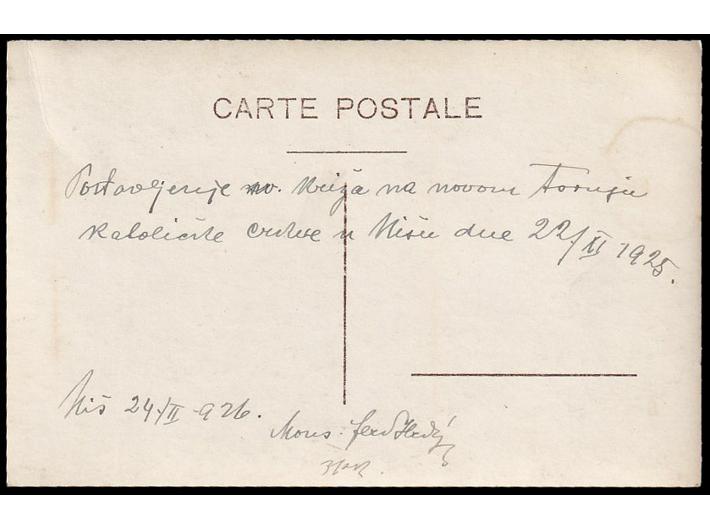 CARTE POSTALE
Postavljenje sv. Križa na novom tornju
katoličke crkve u Nišu dne 22/II 1925.
Niš 24/II 926.
Mons.